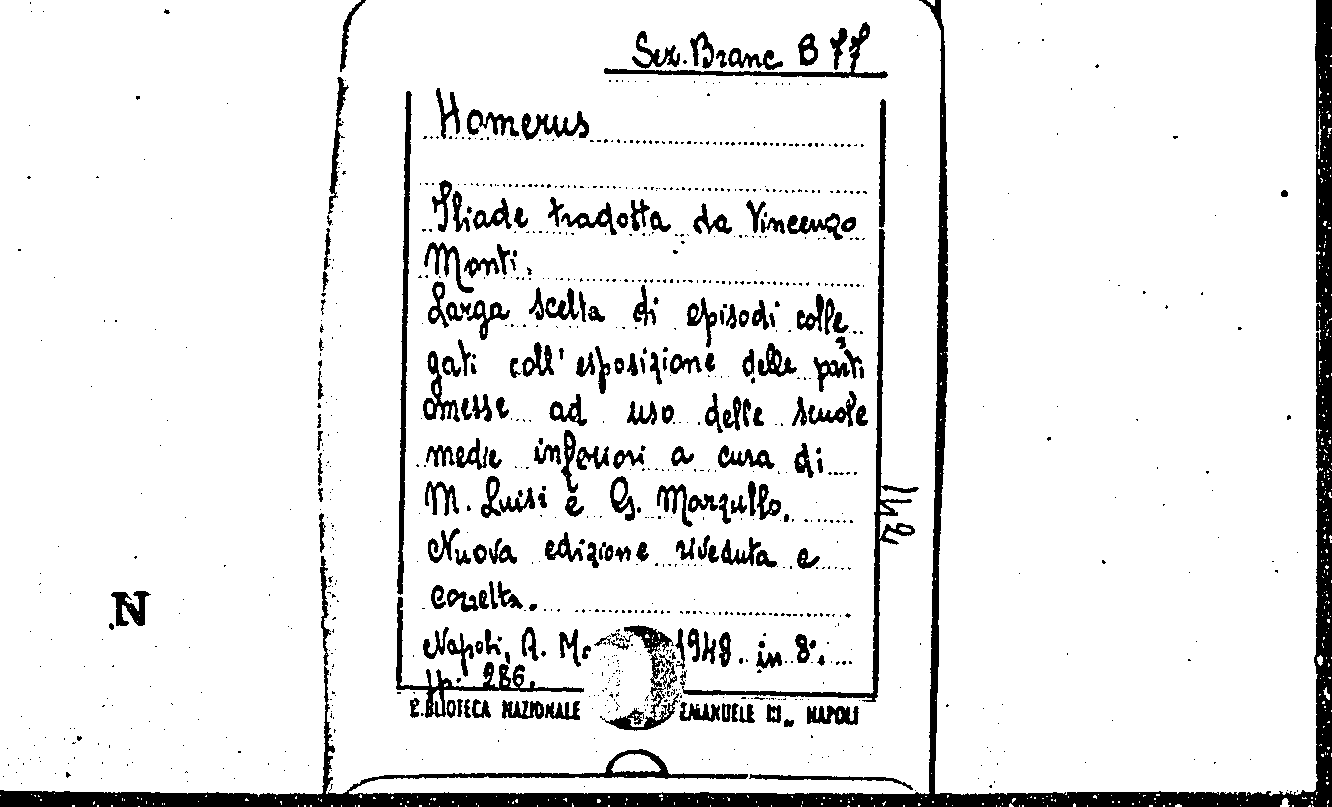 Sez. Branc B 77
Homerus
Iliade tradotta da Vincenzo
Monti.
Larga scelta di episodi colle
gati coll' esposizione delle parti
omesse ad uso delle scuole
medie inferiori a cura di
M. Luisi e G. Marzullo.
Nuova edizione riveduta e
corretta.
Napoli, A. 1948. in 8°.
pp. 286.
BIBLIOTECA NAZIONALE EMANUELE III„ NAPOLI
N